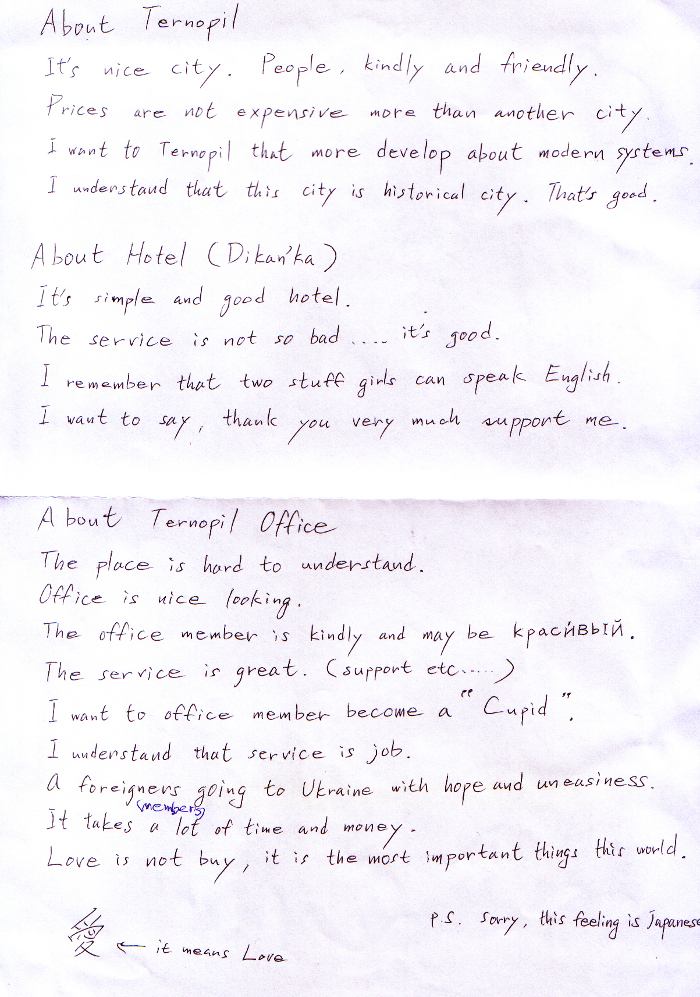 About Ternopil
It's nice city. People, kindly and friendly.
Prices are not expensive more than another city.
I want to Ternopil that more develop about modern systems.
I understand that this city is historical city. That's good.
About Hotel (Dikan'ka)
It's simple and good hotel.
The service is not so bad .... it's good.
I remember that two stuff girls can speak English.
I want to say, thank you very much support me.
About Ternopil Office
The place is hard to understand.
Office is nice looking.
The office member is kindly and may be краси́вый.
The service is great. (support etc.....)
I want to office member become a "Cupid".
I understand that service is job.
A foreigners going to Ukraine with hope and uneasiness.
(members)
It takes a lot of time and money.
Love is not buy, it is the most important things this world.
P.S. Sorry, this feeling is Japanese
愛 ← it means Love